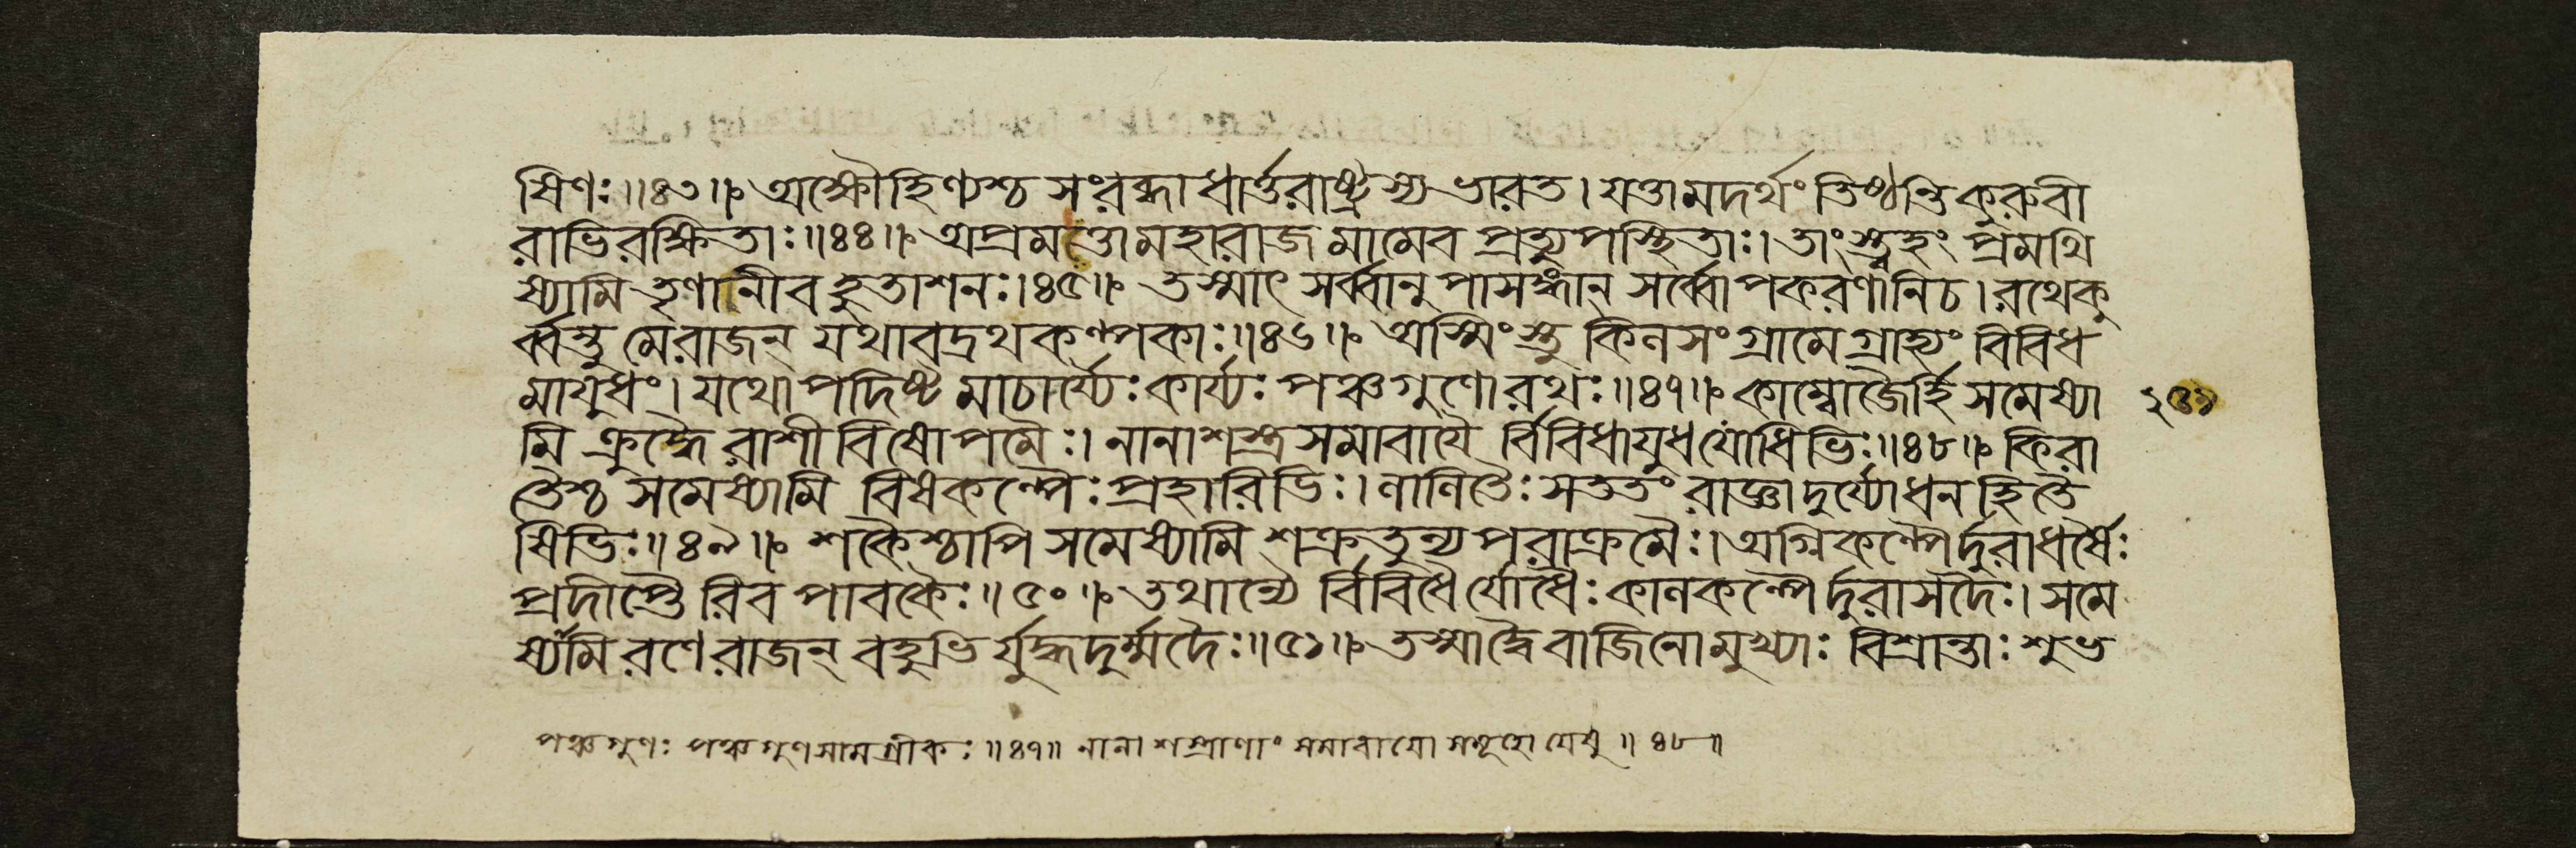 ষিণঃ॥৪৩॥ অক্ষৌহিণ্যশ্চ সংরব্ধা ধার্ত্তরাষ্ট্রস্য ভারত। যত্তা মদর্থং তিষ্ঠন্তি কুরুবী
রাভিরক্ষিতাঃ॥৪৪॥ অপ্রমত্তা মহারাজ মামেব প্রত্যুপস্থিতাঃ। তাংস্ত্বহং প্রমথি
ষ্যামি তৃণানীব হুতাশনঃ।৪৫॥ তস্মাৎ সর্ব্বানুপাসঙ্গান্ সর্ব্বোপকরণানি চ। রথে কু
র্ব্বন্তু মে রাজন্ যথাবদ্রথকল্পকাঃ॥৪৬॥ অস্মিংস্তু কিল সংগ্রামে গ্রাহ্যং বিবিধ
মাযুধং। যথোপদিষ্টমাচার্য্যৈঃ কার্য্যঃ পঞ্চগুণো রথঃ॥৪৭॥ কাম্বোজৈর্হি সমেষ্যা
মি ক্রুদ্ধৈরাশীবিষোপমৈঃ। নানাশস্ত্রসমাবাযৈর্বিবিধাযুধযোধিভিঃ॥৪৮॥ কিরা
তৈশ্চ সমেষ্যামি বিষকল্পৈঃ প্রহারিভিঃ। লালিতৈঃ সততং রাজ্ঞা দুর্য্যোধনহিতৈ
ষিভিঃ॥৪৯॥ শকৈশ্চাপি সমেষ্যামি শক্রতুল্যপরাক্রমৈঃ। অগ্নিকল্পৈর্দুরাধর্ষৈঃ
প্রদীপ্তৈরিব পাবকৈঃ॥৫০॥ তথান্যৈর্বিবিধৈর্যোধৈঃ কালকল্পৈর্দুরাসদৈঃ। সমে
ষ্যামি রণে রাজন্ বহুভির্যুদ্ধদুর্ম্মদৈঃ॥৫১॥ তস্মাদ্বৈ বাজিনো মুখ্যাঃ বিশ্রান্তাঃ শুভ
পঞ্চগুণঃ পঞ্চগুণসামগ্রীকঃ॥৪৭॥ নানাশস্ত্রাণাং সমাবাযো সমূহো যেষু॥৪৮॥